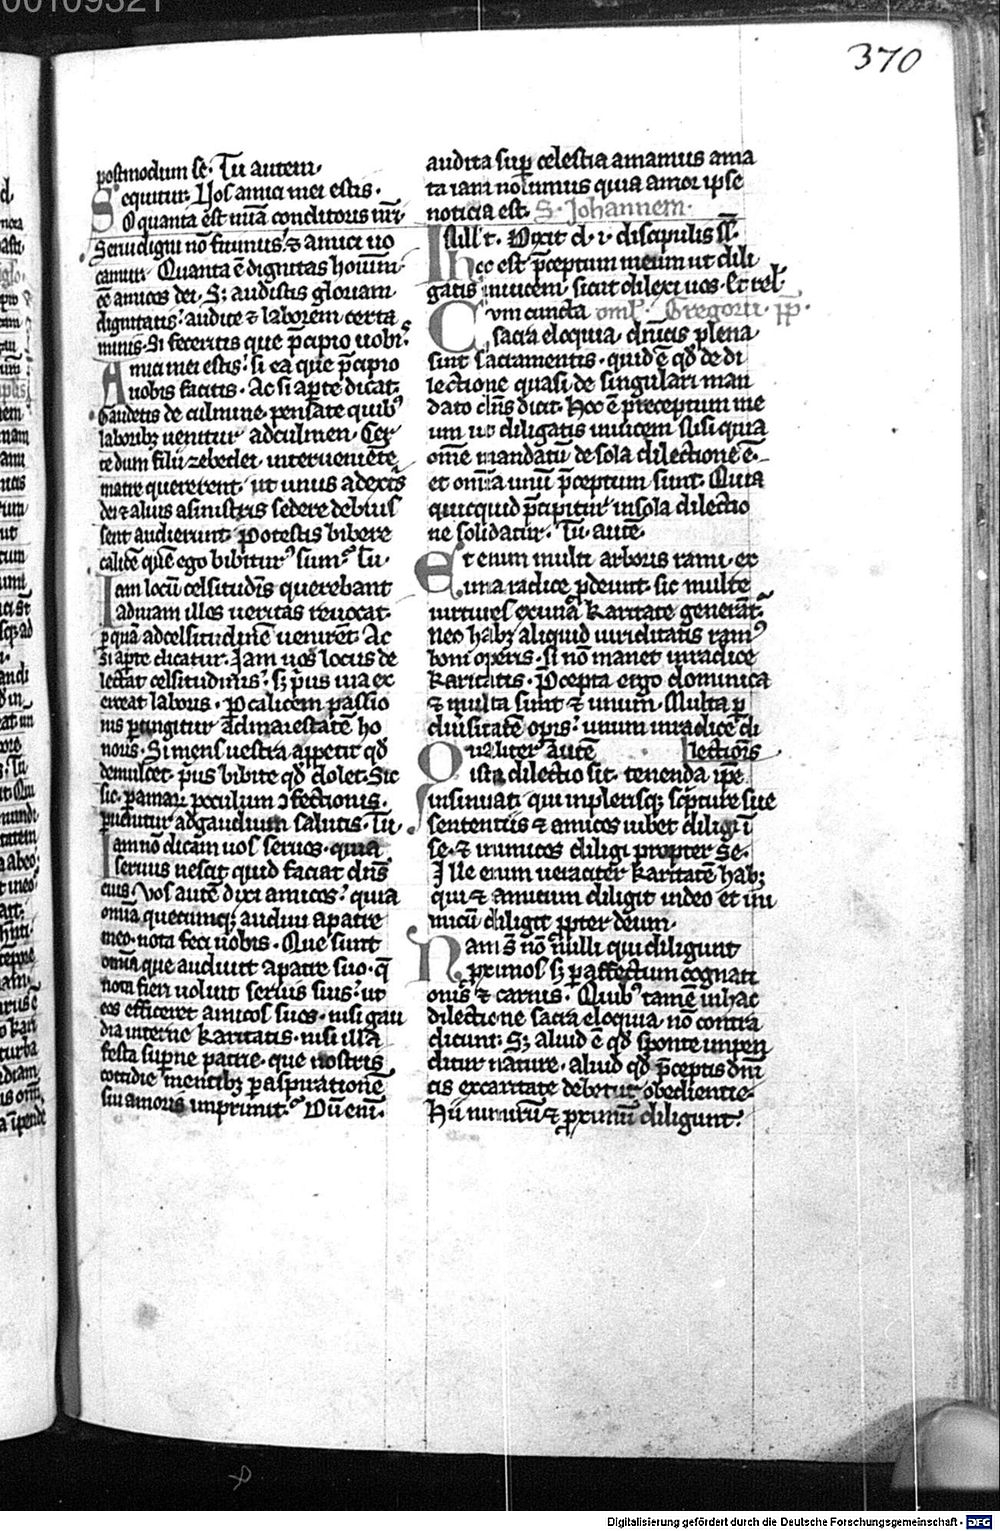 00109321
370
postmodum se. Tu autem.
Sequitur. Vos amici mei estis.
O quanta est mīa conditoris nr̄i.
Serui digni nō sumus. ⁊ amici uo
camur. Quanta ē dignitas hominū.
ēē amicos dei. S; audistis gloriam
dignitatis. audite ⁊ laborem certa
minis. Si feceritis que p̄cipio uobis.
Amici mei estis. si ea que p̄cipio
uobis facitis. Ac si aꝑte dicat.
Gaudetis de culmine. pensate quibꝰ
laboribꝫ uenitur ad culmen. Cer
te dum filii zebedei. interueniēte
matre quererent. ut unus a dextris
dei ⁊ alius a sinistris sedere debuis
sent audierunt. Potestis bibere
calicē quē ego bibiturꝰ sum. Tu.
Iam locū celsitudīs querebant
ad uiam illos ueritas reuocat.
ꝑ quā ad celsitudinē uenirēt. Ac
si aꝑte dicatur. Iam uos locus de
lectat celsitudinis. sꝫ p̄us uia ex
erceat laboris. P calicem passio
nis ꝑtingitur ad maiestatē ho
noris. Si mens uestra appetit qd̄
demulcet. p̄us bibite qd̄ dolet. Sic
sic. ꝑ amarū poculum ꝯfectionis.
ꝑuenitur ad gaudium salutis. Tu.
Iam nō dicam uos seruos. quia
seruus nescit quid faciat dn̄s
eius. Vos autē dixi amicos. quia
omīa quecumqꝫ audiui a patre
meo. nota feci uobis. Que sunt
omīa que audiuit a patre suo. q̄
nota fieri uoluit seruis suis. ut
eos efficeret amicos suos. nisi gau
dia interne karitatis. nisi illa
festa suꝑne patrie. que nostris
cottidie mentibꝫ ꝑ aspirationē
sui amoris imprimit. Dū eni.
audita suꝑ celestia amamus. ama
ta iam nouimus quia amor ipse
noticia est. S. Johannem.
In ill̄ t. Dixit d. i. discipulis s̄.
Hoc est p̄ceptum meum ut dili
gatis inuicem. sicut dilexi uos. Et rel̄.
Cvm cuncta omel̄. Gregorii. pp̄.
sacra eloquia. dn̄icis plena
sint sacramentis. quid ē qd̄ de di
lectione quasi de singulari man
dato dn̄s dicit. Hoc ē preceptum me
um ut diligatis inuicem. nisi quia
omē mandatū de sola dilectione ē.
et omīa unū p̄ceptum sunt. Quia
quicquid p̄cipitur in sola dilectio
ne solidatur. Tu. autē.
Et enim multi arboris rami. ex
una radice ꝓdeunt. sic multe
uirtutes ex una karitate generāt̄.
nec habꝫ aliquid uiriditatis ramꝰ
boni operis. si nō manet in radice
karitatis. P̄cepta ergo dominica
⁊ multa sunt ⁊ unum. Multa ꝑ
diuersitatē oꝑis. unum in radice di
Qualiter autē lectionis
ista dilectio sit. tenenda ip̄e
insinuat. qui in plerisqꝫ scripture sue
sententiis ⁊ amicos iubet diligi ī
se. ⁊ inimicos diligi propter se.
Ille enim ueraciter karitatē habꝫ
qui ⁊ amicum diligit in deo et ini
micū diligit ꝓpter deum.
Nam s̄ nō nulli qui diligunt
ꝓximos sꝫ ꝑ affectum cognati
onis ⁊ carnis. Quibꝰ tamē in hac
dilectione sacra eloquia nō contra
dicunt. Sꝫ aliud ē qd̄ sponte inpen
ditur nature. aliud qd̄ p̄ceptis dn̄i
cis ex caritate debetur obedientie.
Hii nimirū ⁊ ꝓximū diligunt.
Digitalisierung gefördert durch die Deutsche Forschungsgemeinschaft - DFG